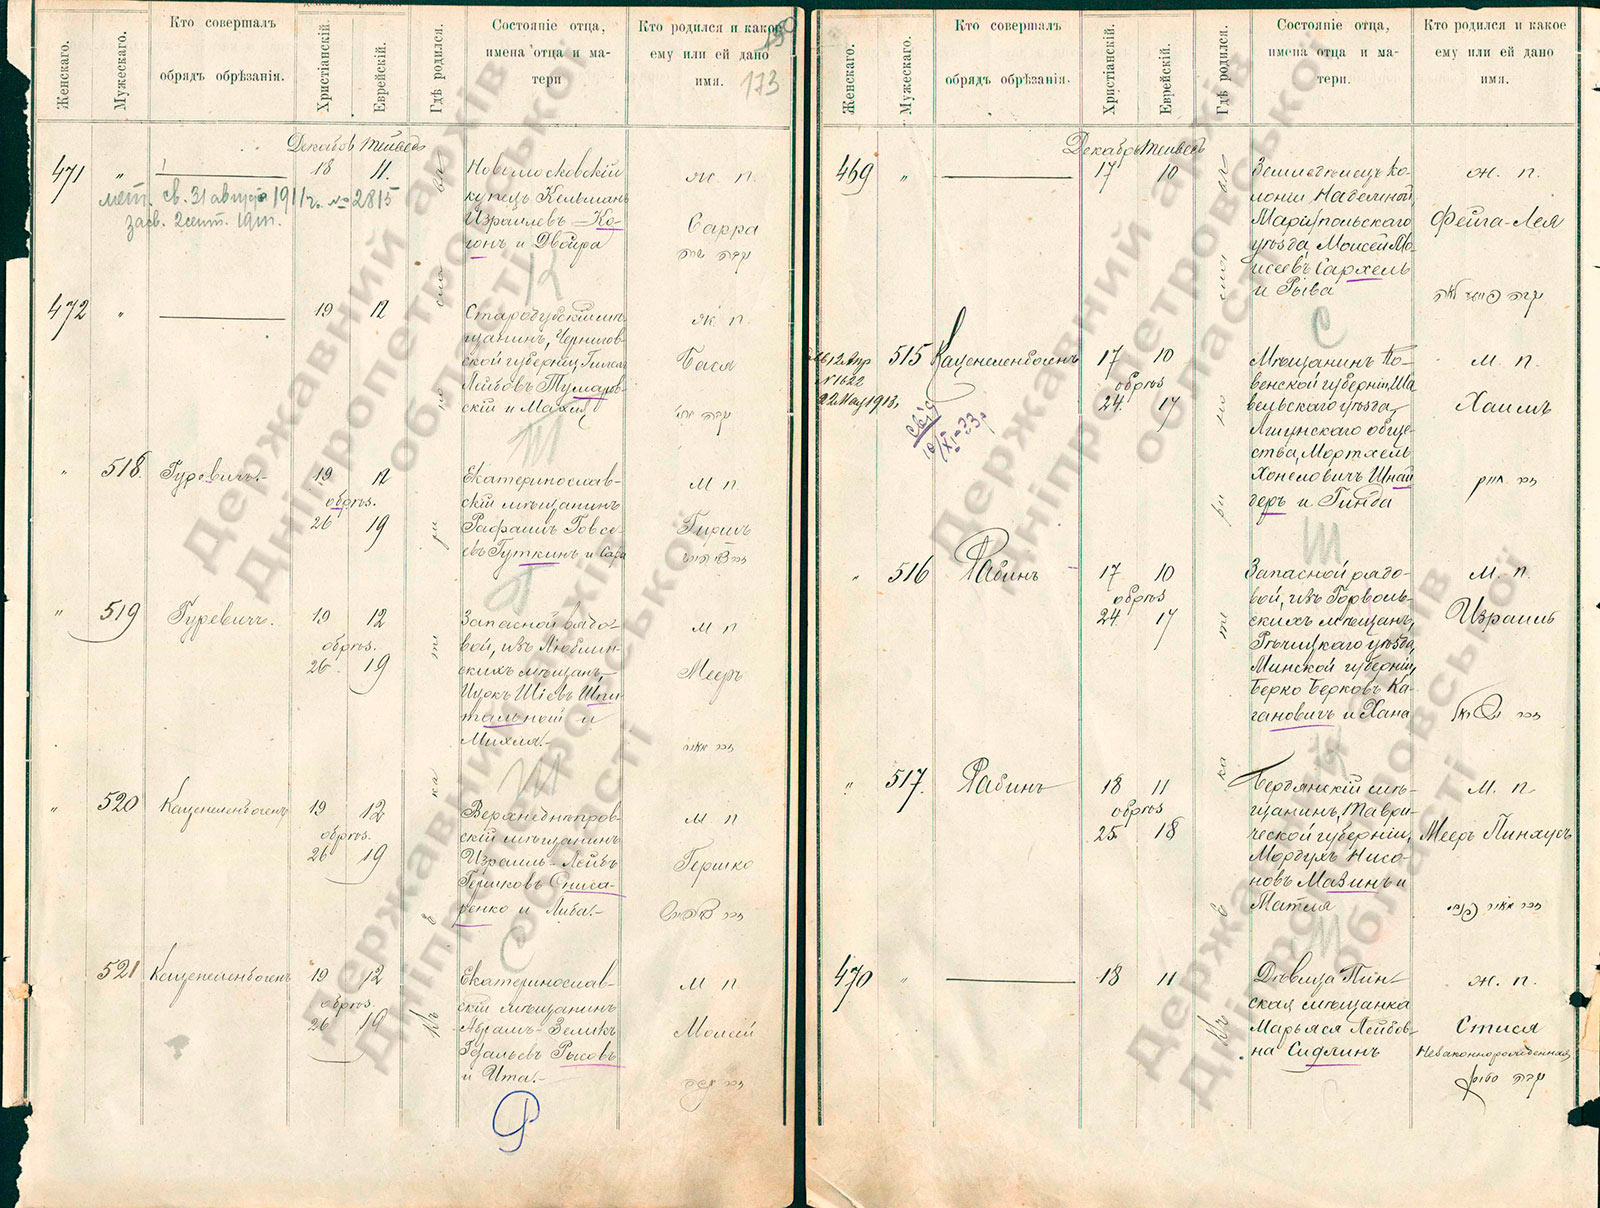 Женскаго.
Мужескаго.
Кто совершалъ
обрядъ обрѣзанія.
Христіанскій.
Еврейскій.
Гдѣ родился.
Состояніе отца,
имена отца и ма-
тери
Кто родился и какое
ему или ей дано
имя.
173
Декабрь Тейвесъ
471 " 18 11
Новомосковскій
купецъ Кельманъ
Израилевъ Ко-
гонъ и Двойра
ж. п.
Сарра
мет. св. 31 августа 1911 г. № 2815
засв. 2 сент. 1911.
472 " 19 12
Стародубскій мѣ-
щанинъ, Чернигов-
ской губерніи
Лейбовъ Тумаров-
скій и Махля
ж. п.
Бася
" 518. Гуревичъ.- 19 12
обрѣз.
26 19
Екатеринослав-
скій мѣщанинъ
Рафаилъ Говсе-
евъ Гуткинъ и Сара
м п.
Гиршъ
" 519 Гуревичъ. 19 12
обрѣз.
26 19
Запасной рядо-
вой, изъ Люблин-
скихъ мѣщанъ,
Ицекъ Шіевъ Шпи-
тальный и
Михля.-
м п
Мееръ
" 520 Каценеленбогенъ 19 12
обрѣз.
26 19
Верхнеднѣпров-
скій мѣщанинъ
Израиль-Лейбъ
Гершковъ Списа-
ренко и Либа.-
м п
Гершко
521 Каценеленбогенъ 19 12
обрѣз.
26 19
Екатеринослав-
скій мѣщанинъ
Абрамъ-Зеликъ
Гдальевъ Рысовъ
и Ита.-
м п
Моисей
къ в ка те ри но сла вѣ
Р
Женскаго.
Мужескаго.
Кто совершалъ
обрядъ обрѣзанія.
Христіанскій.
Еврейскій.
Гдѣ родился.
Состояніе отца,
имена отца и ма-
тери.
Кто родился и какое
ему или ей дано
имя.
Декабрь Тейвесъ
469 " 17 10
Земледѣлецъ ко-
лоніи Надежной,
Маріупольскаго
уѣзда, Моисей Мо-
исеевъ Сархель
и Рыва
ж. п.
Фейга-Лея
С
12 Апр
№ 1622
22 Мая 1913,
515 Каценеленбогенъ 17 10
обрѣз
24. 17
Мѣщанинъ Ко-
венской губерніи, Ша-
вельскаго уѣзда,
обще-
ства, Мортхель
Хонеловичъ Шнай-
деръ и Гинда
м. п.
Хаимъ
Ш
" 516 Рабинъ 17 10
обрѣз
24. 17
Запасной рядо-
вой, изъ Горволь-
скихъ мѣщанъ,
Рѣчицкаго уѣзда,
Минской губерніи,
Берко Берковъ Ка-
гановичъ и Хана
м. п.
Израиль
" 517. Рабинъ 18 11
обрѣз
25 18
Бердянскій мѣ-
щанинъ, Таври-
ческой губерніи,
Мордухъ Нисо-
новъ Мазинъ и
Матля
м. п
Мееръ Пинхусъ
470 " 18 11
Дѣвица Пин-
ская мѣщанка
Марьяся Лейбов-
на Сидлинъ
ж. п.
Стися
Незаконнорожденная
Державний архів
Дніпропетровської
області